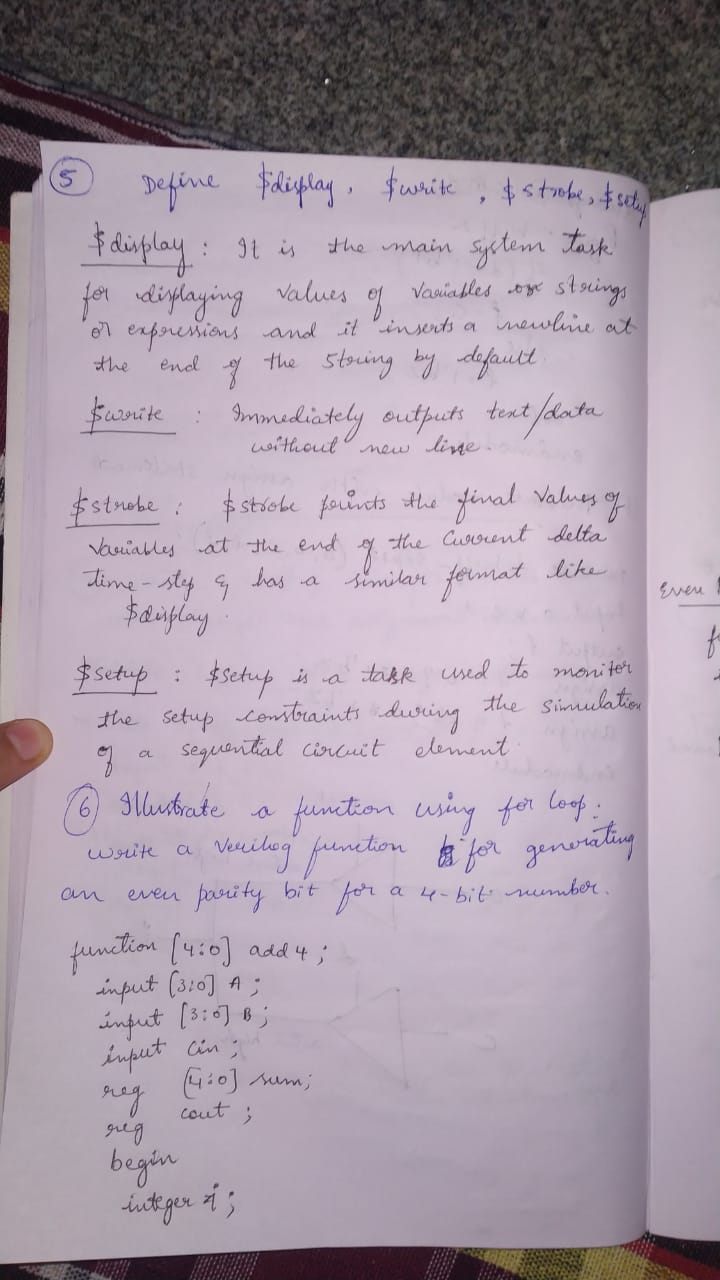 5 Define $display, $write, $strobe, $setup
$display : It is the main system task
for displaying values of variables or strings
or expressions and it inserts a newline at
the end of the string by default
$write : Immediately outputs text/data
without new line.
$strobe : $strobe prints the final values of
variables at the end of the current delta
time-step & has a similar format like
$display.
$setup : $setup is a task used to monitor
the setup constraints during the simulation
of a sequential circuit element.
6 Illustrate a function using for loop.
write a Verilog function for generating
an even parity bit for a 4-bit number.
function [4:0] add4;
input [3:0] A;
input [3:0] B;
input cin;
reg [4:0] sum;
reg cout;
begin
integer i;
Even